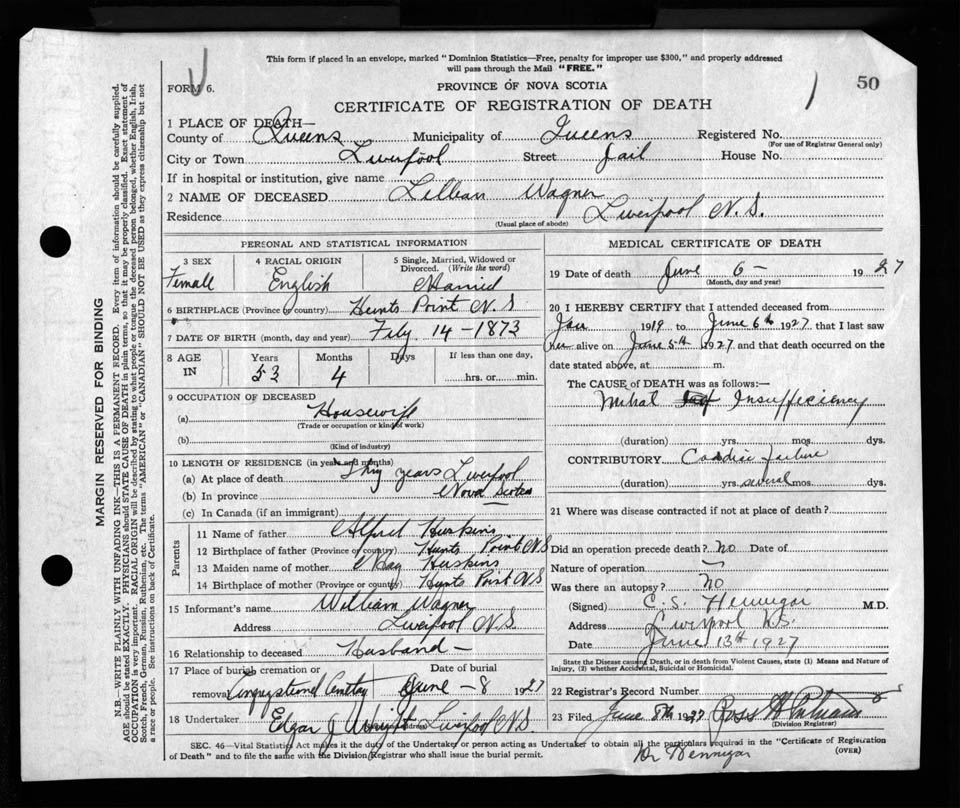 This form if placed in an envelope, marked "Dominion Statistics—Free, penalty for improper use $300," and properly addressed
will pass through the Mail "FREE."
FORM 6.
PROVINCE OF NOVA SCOTIA
50
CERTIFICATE OF REGISTRATION OF DEATH
1 PLACE OF DEATH—
County of Queens Municipality of Queens Registered No.
(For use of Registrar General only)
City or Town Liverpool Street Jail House No.
If in hospital or institution, give name
2 NAME OF DECEASED Lillian Wagner
Residence Liverpool N.S.
(Usual place of abode)
PERSONAL AND STATISTICAL INFORMATION
3 SEX
Female
4 RACIAL ORIGIN
English
5 Single, Married, Widowed or
Divorced. (Write the word)
Married
6 BIRTHPLACE (Province or country) Hunts Point N.S
7 DATE OF BIRTH (month, day and year) 14-1873
8 AGE
IN
Years
53
Months
4
Days
If less than one day,
hrs. or min.
9 OCCUPATION OF DECEASED
(a) Housewife
(Trade or occupation or kind of work)
(b)
(Kind of industry)
10 LENGTH OF RESIDENCE (in years and months)
(a) At place of death years Liverpool
(b) In province Nova Scotia
(c) In Canada (if an immigrant)
Parents
11 Name of father Alfred Huskins
12 Birthplace of father (Province or country) Hunts Point N.S
13 Maiden name of mother Huskins
14 Birthplace of mother (Province or country) Hunts Point N.S
15 Informant's name William Wagner
Address Liverpool N.S
16 Relationship to deceased Husband
17 Place of burial cremation or
removal Congregational Cemetery
Date of burial
June - 8 1927
18 Undertaker Edgar J Wright Address Liverpool N.S
MEDICAL CERTIFICATE OF DEATH
19 Date of death June 6 - 1927
(Month, day and year)
20 I HEREBY CERTIFY that I attended deceased from
Jan 1919 to June 6th 1927 that I last saw
her alive on June 5th 1927 and that death occurred on the
date stated above, at m.
The CAUSE of DEATH was as follows:—
Mitral Insufficiency
(duration) yrs. mos. dys.
CONTRIBUTORY Cardiac failure
(duration) yrs. several mos. dys.
21 Where was disease contracted if not at place of death?
Did an operation precede death? no Date of
Nature of operation
Was there an autopsy? no
(Signed) C. S. Hennigar M.D.
Address Liverpool N.S.
Date June 13th 1927
State the Disease causing Death, or in death from Violent Causes, state (1) Means and Nature of
Injury, (2) whether Accidental, Suicidal or Homicidal.
22 Registrar's Record Number
23 Filed June 8th 1927 Ross H
(Division Registrar)
SEC. 46—Vital Statistics Act makes it the duty of the Undertaker or person acting as Undertaker to obtain all the particulars required in the "Certificate of Registration
of Death" and to file the same with the Division Registrar who shall issue the burial permit.
(OVER)
Dr Hennigar
MARGIN RESERVED FOR BINDING
N.B. WRITE PLAINLY WITH UNFADING INK—THIS IS A PERMANENT RECORD. Every item of information should be carefully supplied.
AGE should be stated EXACTLY. PHYSICIANS should STATE CAUSE OF DEATH in plain terms, so that it may be properly classified. Exact statement of
OCCUPATION is very important. RACIAL ORIGIN will be described by stating to what people or tongue the deceased person belonged, whether English, Irish,
Scotch, French, German, Russian, Ruthenian, etc. The terms "AMERICAN" or "CANADIAN" SHOULD NOT BE USED as they express citizenship but not
a race or people. See instructions on back of Certificate.